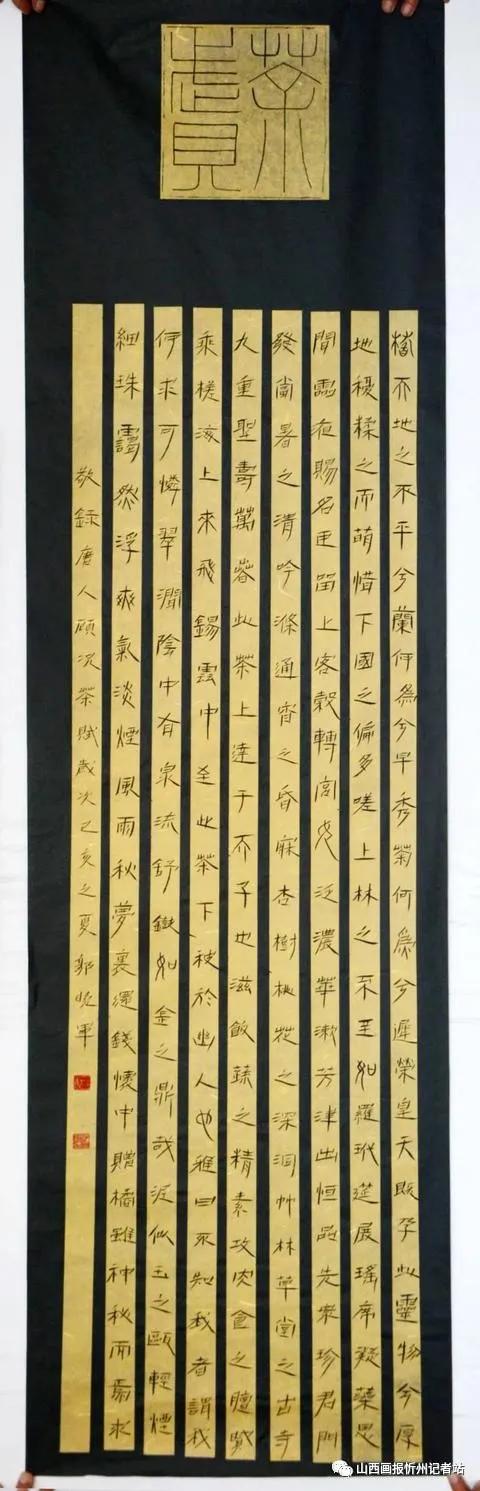 茶賦
稽天地之不平兮蘭何爲兮早秀菊何爲兮遲榮皇天既孕此靈物兮厚
地復糅之而萌惜下國之偏多嗟上林之不至如羅玳筵展瑤席凝藻思
間靈液賜名臣留上客穀轉宮女泛濃華漱芳津出恒品先衆珍君門
九重聖壽萬春此茶上達于天子也滋飯蔬之精素攻肉食之膻膩
發當暑之清吟滌通宵之昏寐杏樹桃花之深洞竹林草堂之古寺
乘槎海上來飛錫雲中至此茶下被於幽人也雅曰不知我者謂我
何求可憐翠澗陰中有泉流舒鐵如金之鼎越泥似玉之甌輕煙
細珠靄然浮爽氣淡煙風雨秋夢裏還錢懷中贈橘雖神秘而焉求
敬錄唐人顧況茶賦歲次己亥之夏郭軍
山西画报忻州记者站